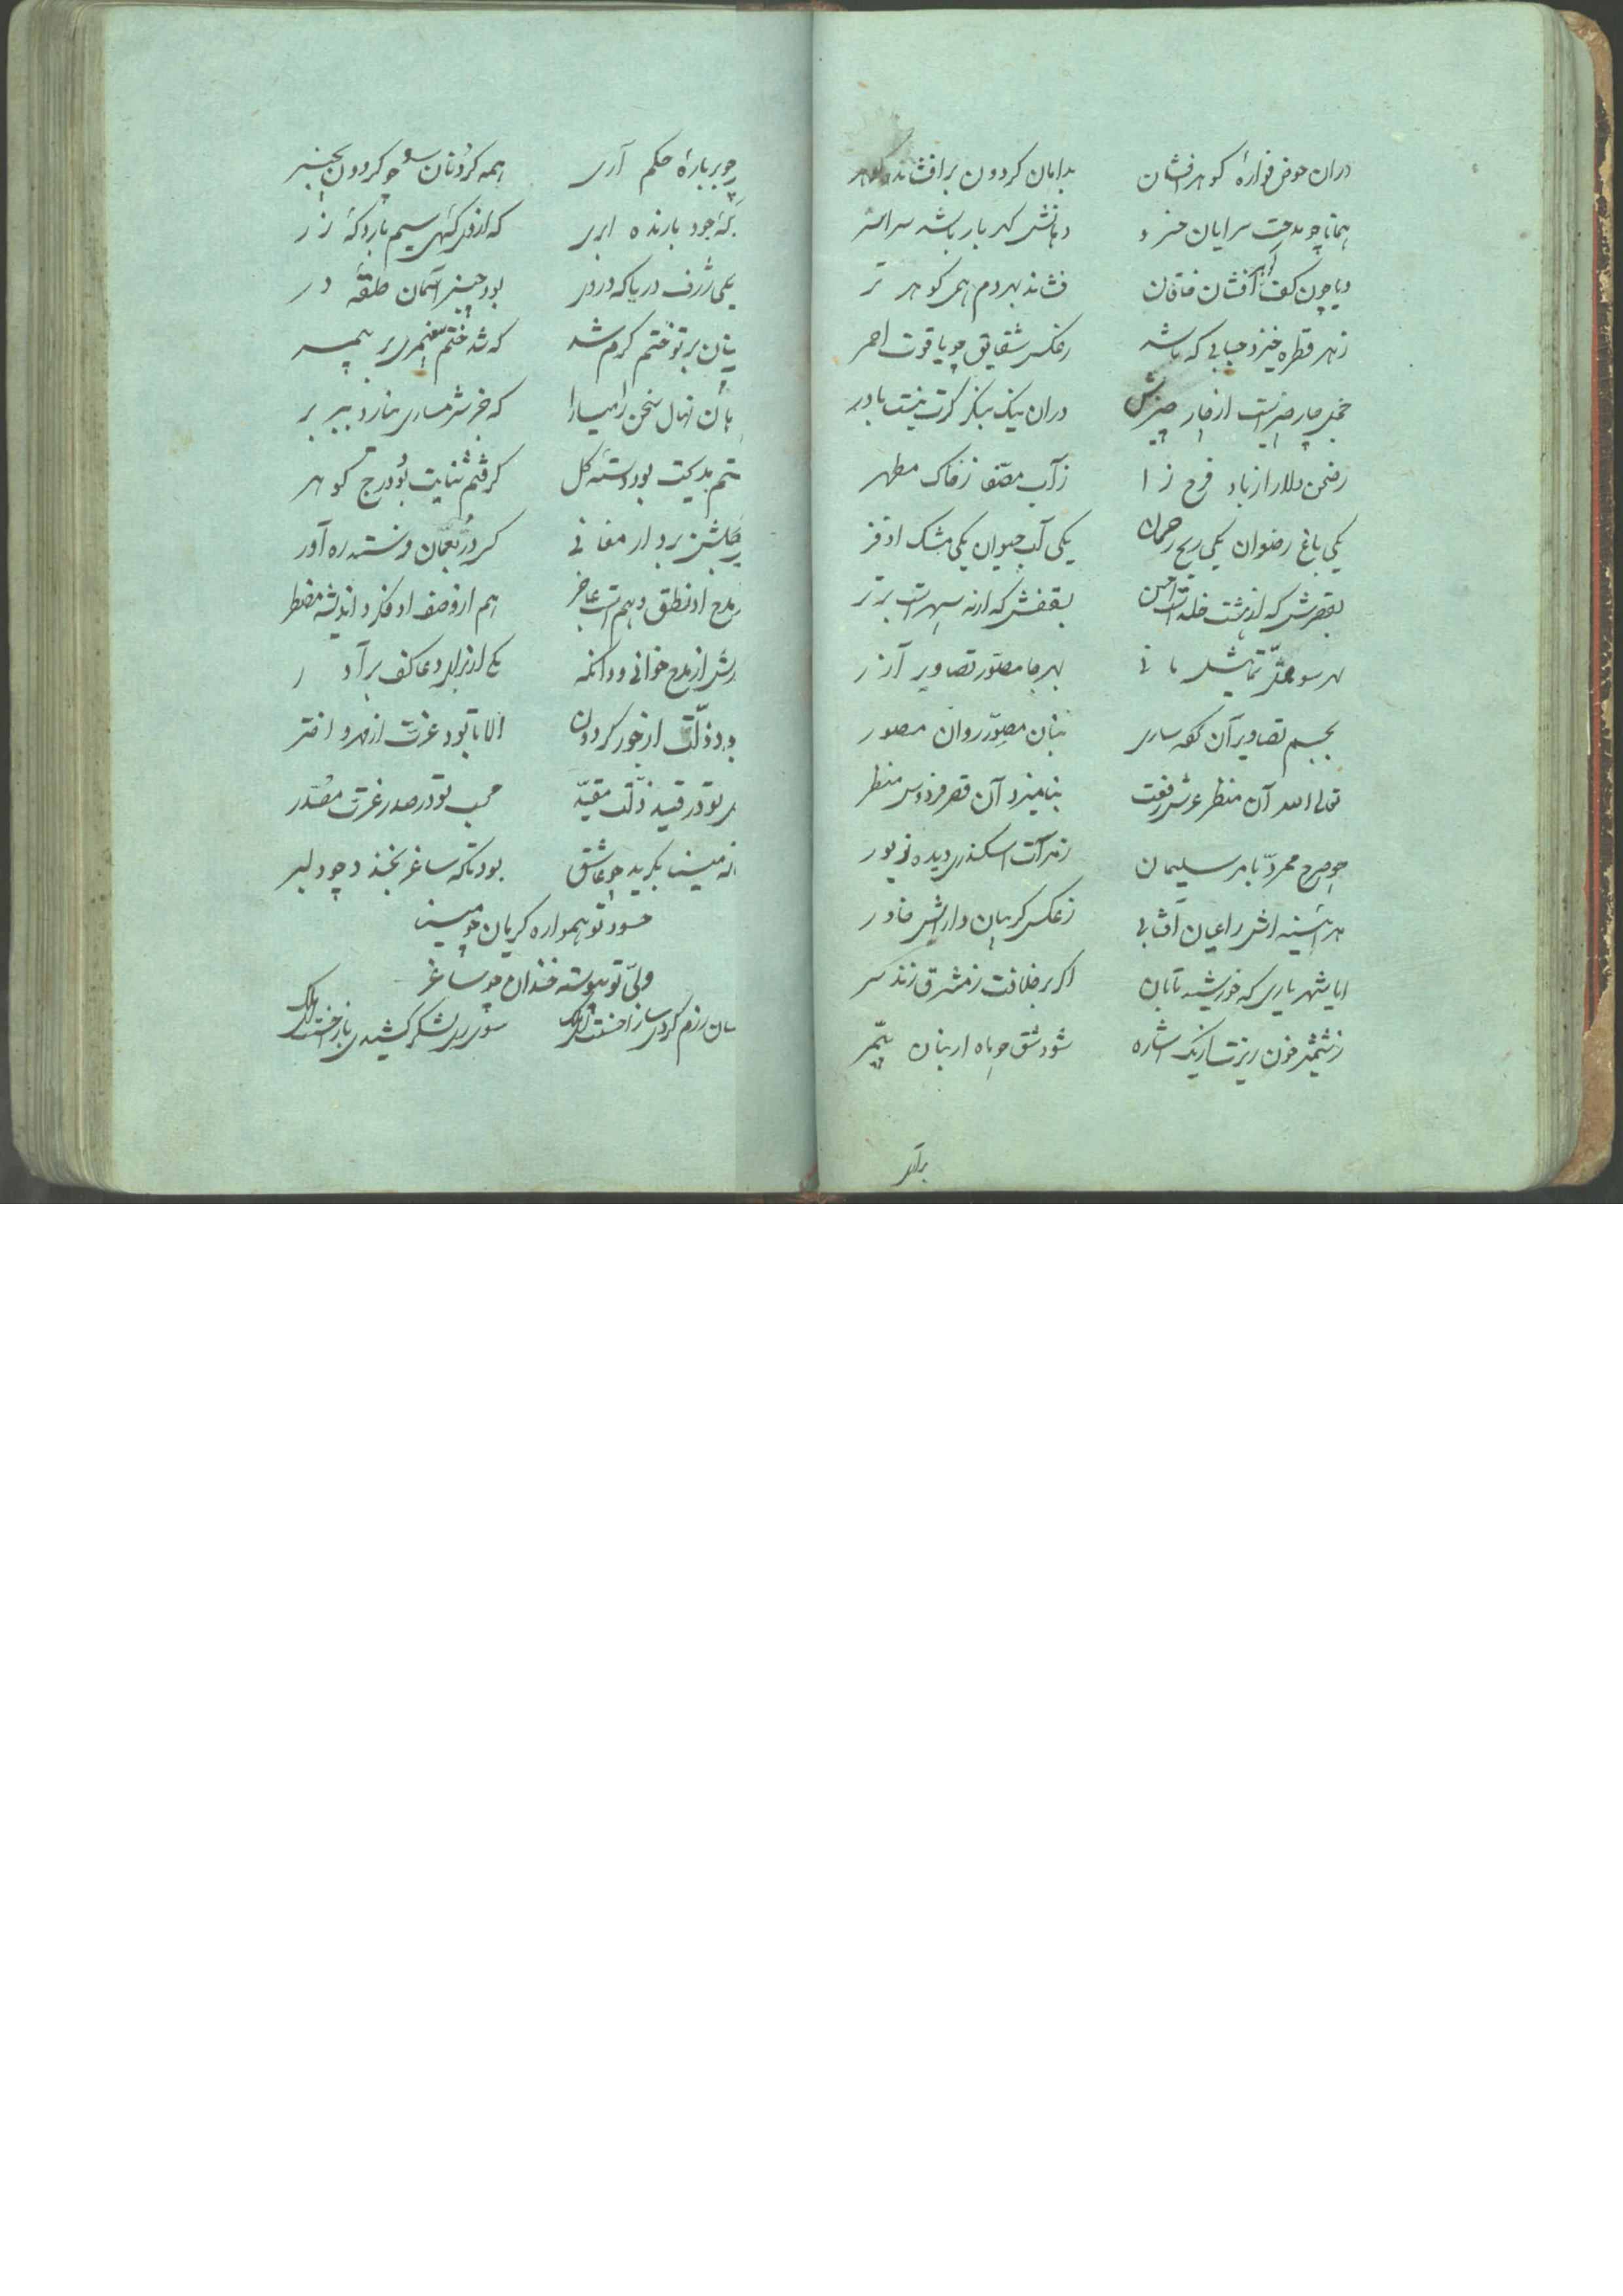 دران حوض فوارهٔ کوهر افشان بدامان کردون بر افشانده کوهر
همانا چو مدحت سرایان خسرو دهانش کهر بار باشد سراسر
و یا چون کف افشان خاقان فشاند بهر دم همی کوهر تر
زهر قطره خیزد حبابی که باشد ز عکس شقایق چو یاقوت احمر
خجل چار چیز است از چار چیزش دران نیک بنکر کرت نیست باور
ز صحن دلارا ز باد فرح زا ز آب مصفّا ز خاک مطهر
یکی باغ رضوان یکی ریح رحمان یکی آب حیوان یکی مشک اذفر
بقصرش که از هشت خلد است احسن بسقفش که از نه سپهر است برتر
بهر سو ممثّل تماثیل مانی بهر جا مصوّر تصاویر آزر
بجسم تصاویر آن کوه ساری بنان مصوّر روان مصور
تعالی الله آن منظر عرش رفعت بنامیزد آن قصر فردوس منظر
چو صرح ممرّد بامر سلیمان ز مرآت اسکندری دیده زیور
هر آئینه اش را عیان آفتابی ز عکس کریبان دارای خاور
ایا شهریاری که خورشید تابان اکر بر خلافت ز مشرق زند سر
ز شمشیر خون ریزت از یک اشاره شود شق چو ماه از بنان پیمبر
برآر
چو بر بارهٔ حکم آری همه کردنان سر چو کردون بچنبر
که جود بارنده ابری که از وی کهی سیم بارد که زر
یکی ژرف دریا که در وی بود چنبر آسمان حلقهٔ در
بر تو ختم کرم شد که شد ختم پیغمبری بر پیمبر
نهال سخن را میارا که جز شرمساری نیارد ببر بر
مدیحت بود دستهٔ کل کرفتم ثنایت بود درج کوهر
بکلشن برد ارمغانی کس در بعمان فرستد ره آورد
مدح او نطق و هم است عاجز هم از وصف او فکر و اندیشه مضطر
از مدح خوانی و دانکه یکی از برای دعا کف برآور
بود ذلّت از جور کردون الا تا بود عزت از مهر اختر
تو در قید ذلّت مقیّد محب تو در صدر عزت مصدّر
مینا بکرید چو عاشق بود تا که ساغر بخندد چو دلبر
حسود تو همواره کریان چو مینا
ولیّ تو پیوسته خندان چو ساغر
سان رزم کردی ساز احسنت ای ملک سوی ری لشکر کشیدی باز احسنت ای ملک